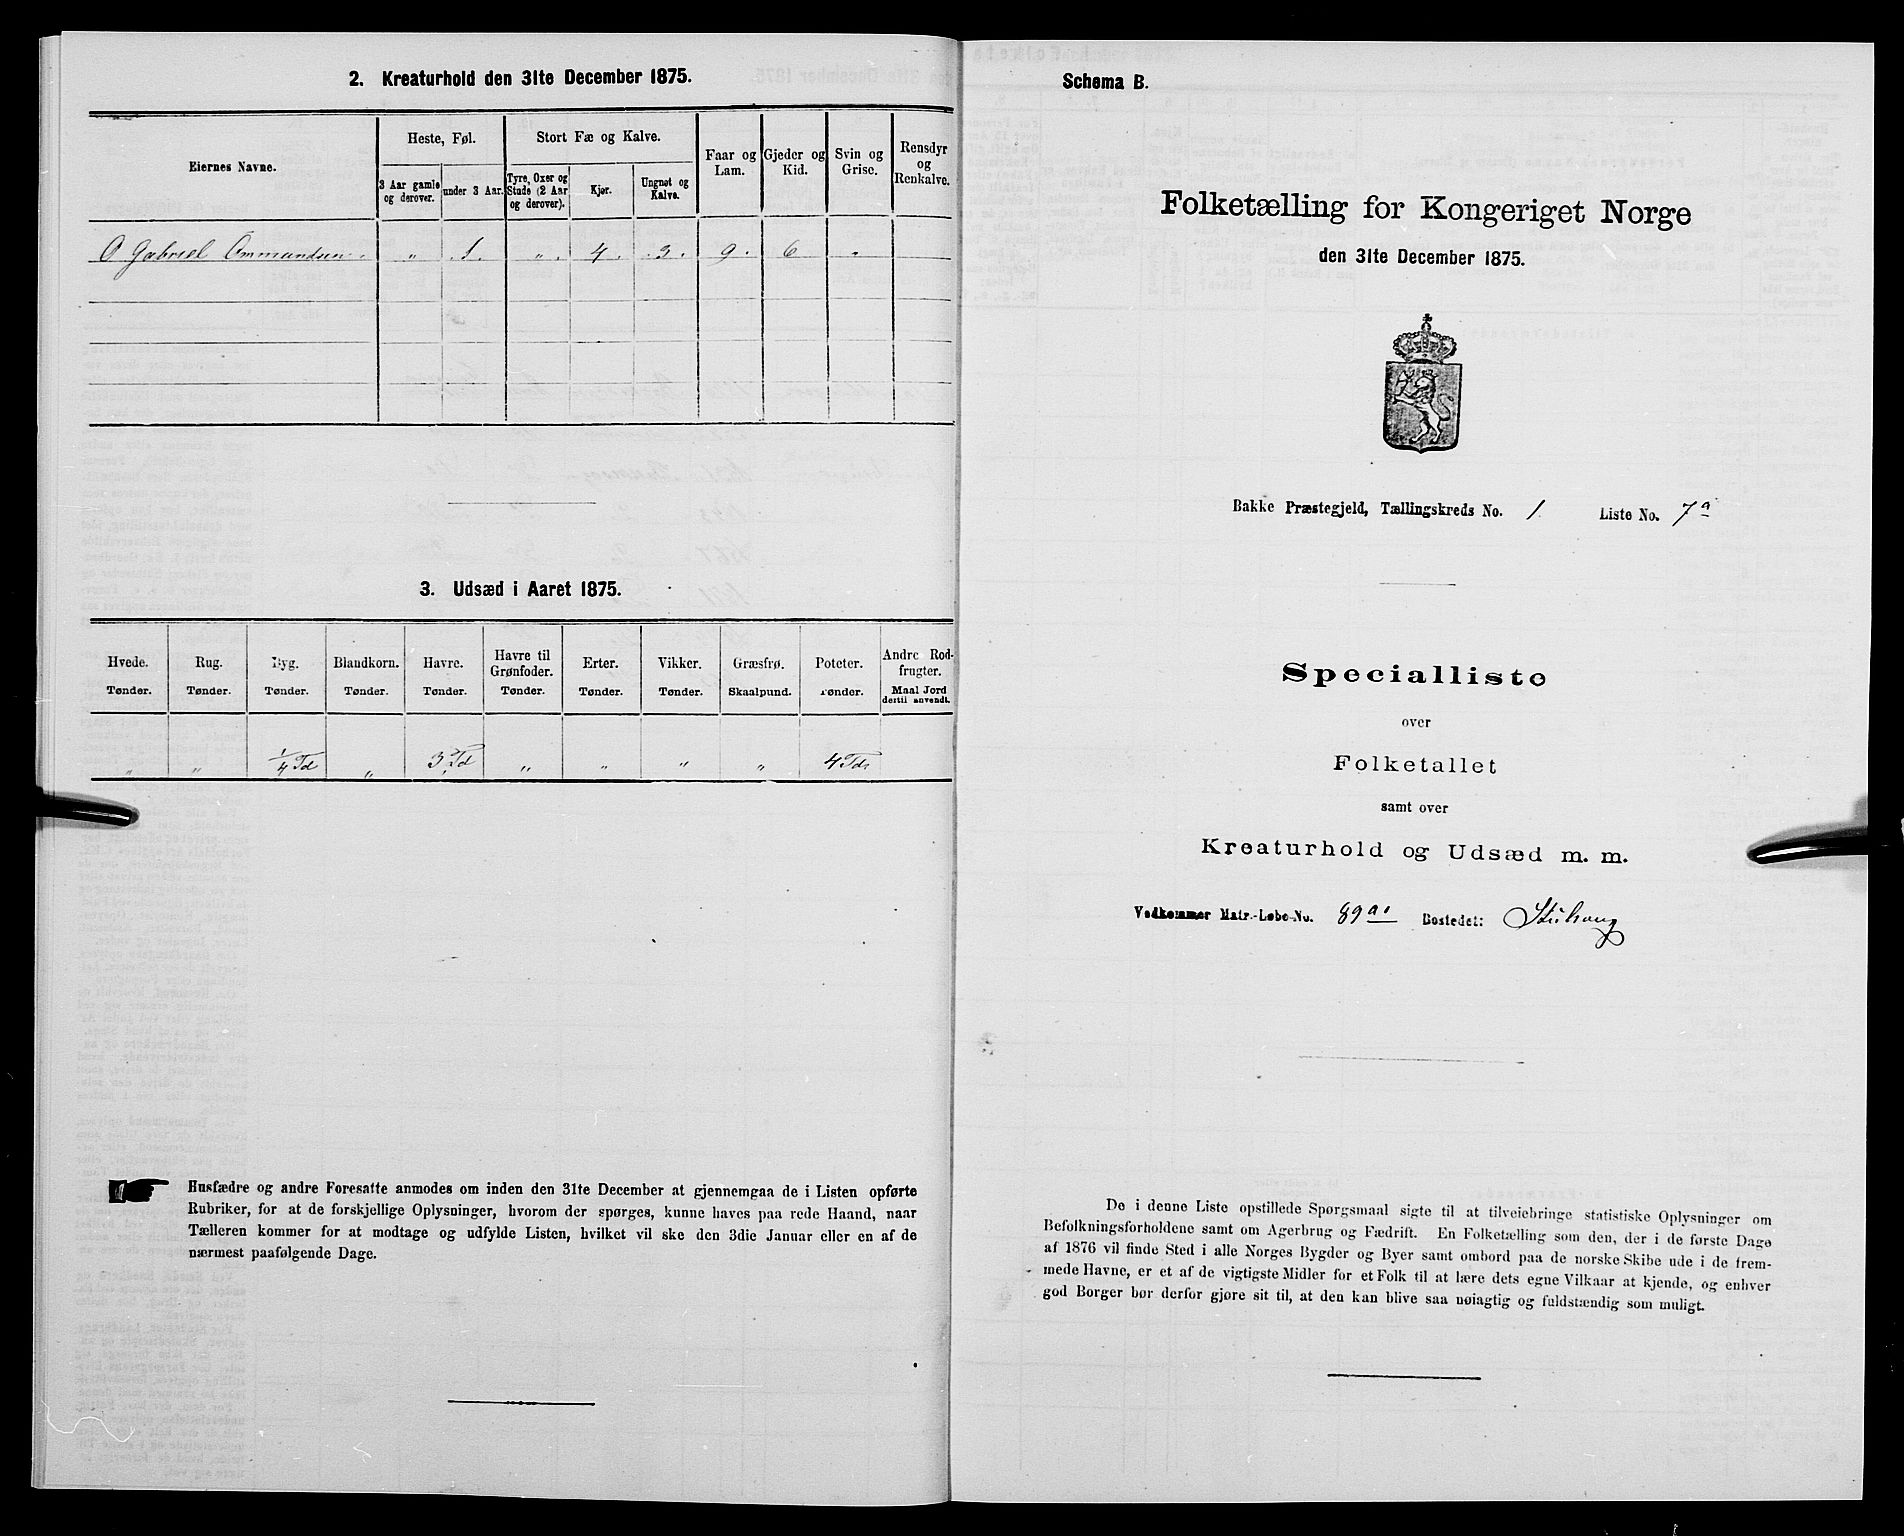 2. Kreaturhold den 31te December 1875.
Eiernes Navne.
Heste, Føl.
Stort Fæ og Kalve.
Faar og Lam.
Gjeder og Kid.
Svin og Grise.
Rensdyr og Renkalve.
3 Aar gamle og derover.
under 3 Aar.
Tyre, Oxer og Stude (2 Aar og derover).
Kjør.
Ungnøt og Kalve.
O Gabriel Ommundsen. " 1. " 4. 3. 9. 6 "
3. Udsæd i Aaret 1875.
Hvede. Rug. Byg. Blandkorn. Havre. Havre til Grønfoder. Erter. Vikker. Græsfrø. Poteter. Andre Rodfrugter.
Tønder. Tønder. Tønder. Tønder. Tønder. Tønder. Tønder. Tønder. Skaalpund. Tønder. Maal Jord dertil anvendt.
" " 1/4 Td " 3 Td " " " " 4 Td
Husfædre og andre Foresatte anmodes om inden den 31te December at gjennemgaa de i Listen opførte
Rubriker, for at de forskjellige Oplysninger, hvorom der spørges, kunne haves paa rede Haand, naar
Tælleren kommer for at modtage og udfylde Listen, hvilket vil ske den 3die Januar eller en af de
nærmest paafølgende Dage.
Schema B.
Folketælling for Kongeriget Norge
den 31te December 1875.
Bakke Præstegjeld, Tællingskreds No. 1. Liste No. 7a
Specialliste
over
Folketallet
samt over
Kreaturhold og Udsæd m. m.
Vedkommer Matr.-Løbe-No. 89a Bostedet:
De i denne Liste opstillede Spørgsmaal sigte til at tilveiebringe statistiske Oplysninger om
Befolkningsforholdene samt om Agerbrug og Fædrift. En Folketælling som den, der i de første Dage
af 1876 vil finde Sted i alle Norges Bygder og Byer samt ombord paa de norske Skibe ude i de frem-
mede Havne, er et af de vigtigste Midler for et Folk til at lære dets egne Vilkaar at kjende, og enhver
god Borger bør derfor gjøre sit til, at den kan blive saa nøiagtig og fuldstændig som muligt.